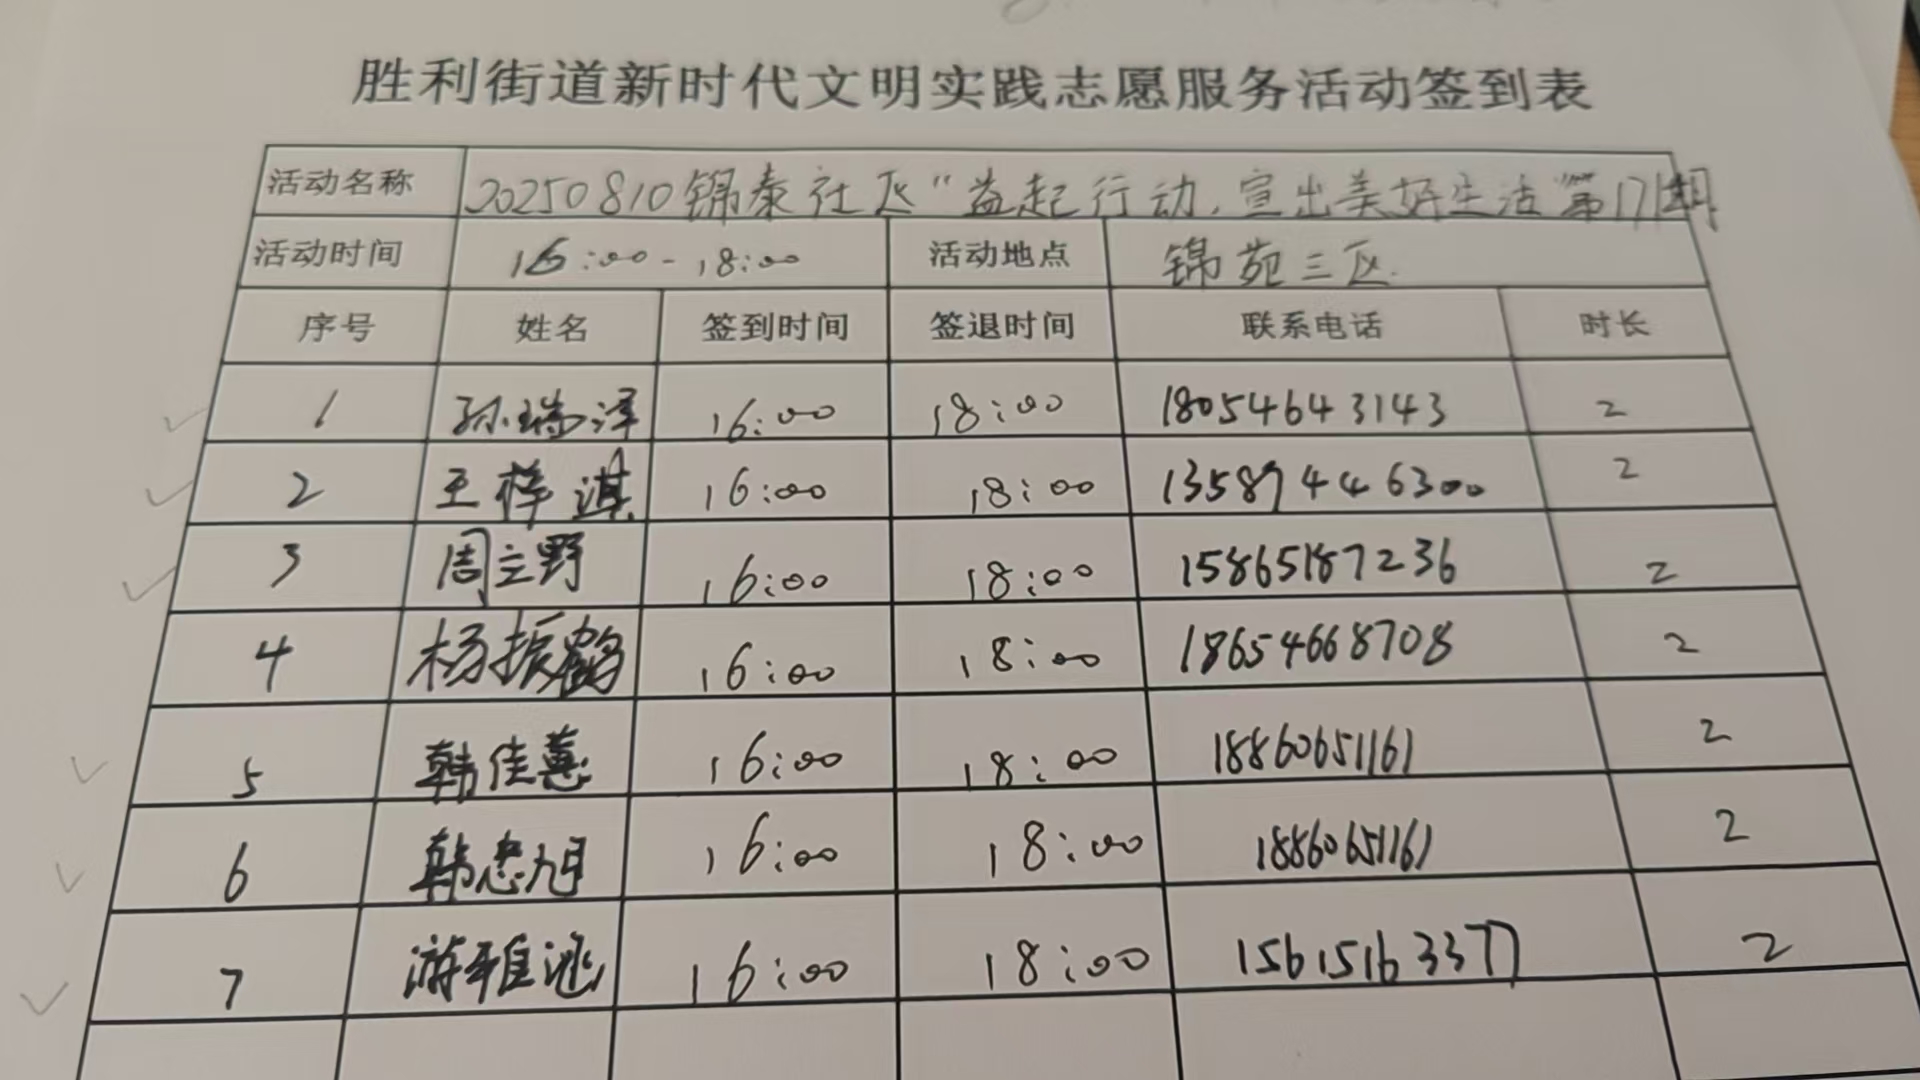 胜利街道新时代文明实践志愿服务活动签到表
活动名称 20250810锦泰社区“益起行动,宣出美好生活”第171期
活动时间 16:00-18:00 活动地点 锦苑三区.
序号 姓名 签到时间 签退时间 联系电话 时长
1 孙瑞泽 16:00 18:00 18054643143 2
2 王梓淇 16:00 18:00 135894446300 2
3 周立野 16:00 18:00 15865187236 2
4 杨振鹤 16:00 18:00 18654668708 2
5 韩佳蕙 16:00 18:00 18860651161 2
6 韩忠旭 16:00 18:00 18860651161 2
7 游雅 16:00 18:00 15615163377 2